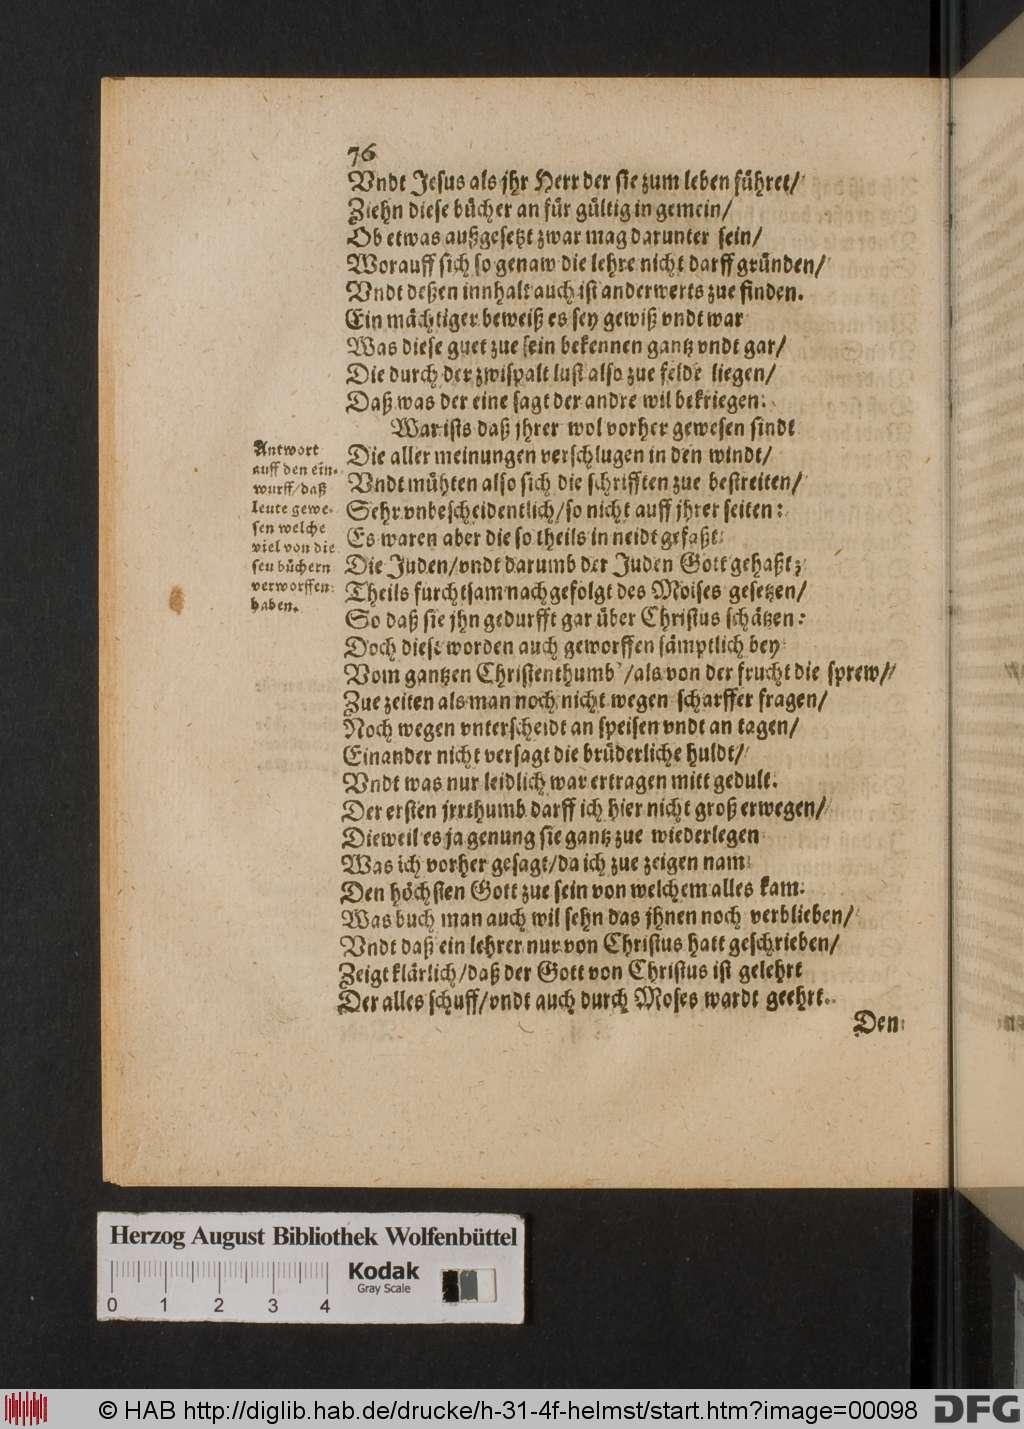 76
Vndt Jesus als jhr Herr der sie zum leben führet/
Ziehn diese bücher an für gültig in gemein/
Ob etwas außgesetzt zwar mag darunter sein/
Worauff sich so genaw die lehre nicht darff gründen/
Vndt deßen innhalt auch ist anderwerts zue finden.
Ein mächtiger beweiß es sey gewiß vndt war
Was diese guet zue sein bekennen gantz vndt gar/
Die durch der zwispalt lust also zue felde liegen/
Daß was der eine sagt der andre wil bekriegen.
War ists daß jhrer wol vorher gewesen sindt
Antwort
auff den ein-
wurff/daß
leute gewe-
sen welche
viel von die
sen büchern
verworffen
haben.
Die aller meinungen verschlugen in den windt/
Vndt mühten also sich die schrifften zue bestreiten/
Sehr vnbescheidentlich/so nicht auff jhrer seiten:
Es waren aber die so theils in neidt gefaßt
Die Juden/vndt darumb der Juden Gott gehaßt;
Theils furchtsam nachgefolgt des Moises gesetzen/
So daß sie jhn gedurfft gar über Christus schätzen:
Doch diese worden auch geworffen sämptlich bey
Vom gantzen Christenthumb'/als von der frucht die sprew/
Zue zeiten als man noch nicht wegen scharffer fragen/
Noch wegen vnterscheidt an speisen vndt an tagen/
Einander nicht versagt die brüderliche huldt/
Vndt was nur leidlich war ertragen mitt gedult.
Der ersten jrrthumb darff ich hier nicht groß erwegen/
Dieweil es ja genung sie gantz zue wiederlegen
Was ich vorher gesagt/da ich zue zeigen nam
Den höchsten Gott zue sein von welchem alles kam.
Was buch man auch wil sehn das jhnen noch verblieben/
Vndt daß ein lehrer nur von Christus hatt geschrieben/
Zeigt klärlich/daß der Gott von Christus ist gelehrt
Der alles schuff/vndt auch durch Moses wardt geehrt.
Den
Herzog August Bibliothek Wolfenbüttel
0 1 2 3 4
Kodak
Gray Scale
© HAB http://diglib.hab.de/drucke/h-31-4f-helmst/start.htm?image=00098
DFG